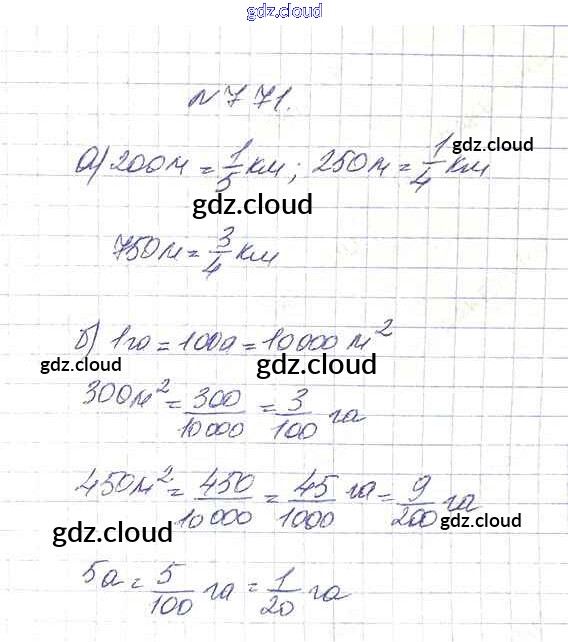 gdz.cloud
gdz.cloud
№771.
а) 200м = 1/5 км; 250м = 1/4 км
gdz.cloud
gdz.cloud
750м = 3/4 км
б) 1га = 100а = 10000 м²
gdz.cloud
gdz.cloud
300м² = 300/10000 = 3/100 га
450м² = 450/10000 = 45/1000 га = 9/200 га
gdz.cloud
gdz.cloud
5а = 5/100 га = 1/20 га
gdz.cloud